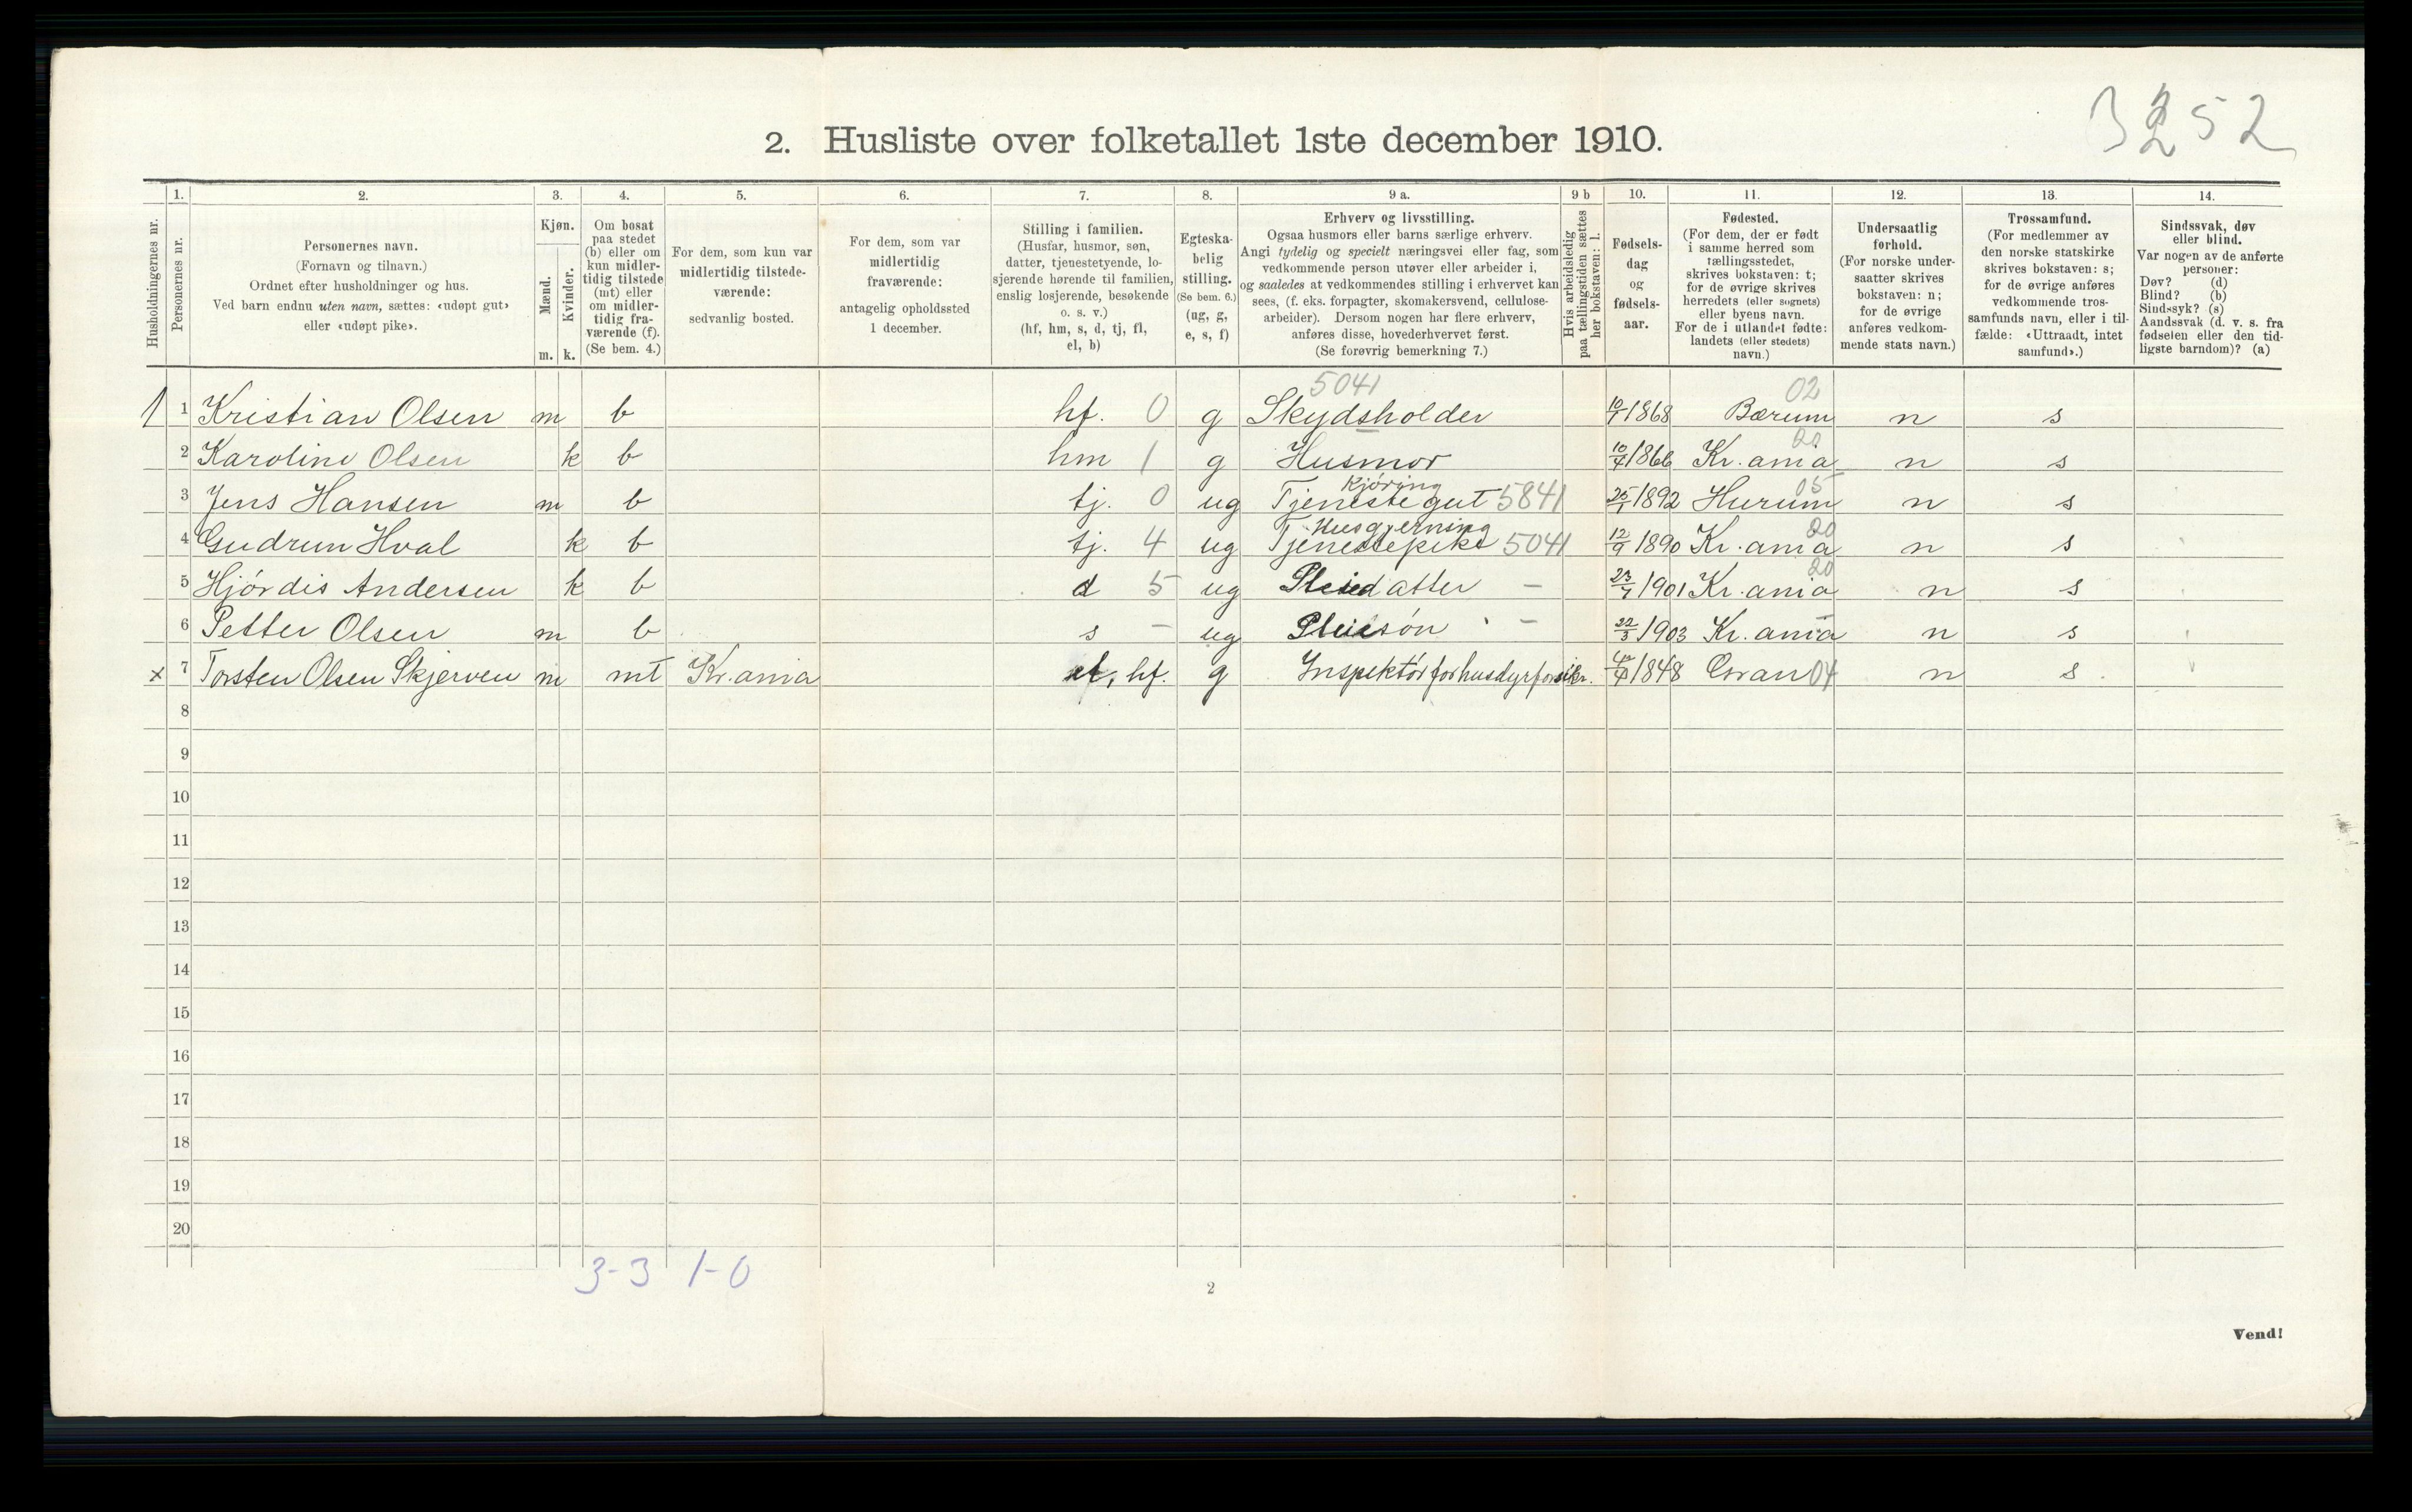 3252
2. Husliste over folketallet 1ste december 1910.
Husholdningernes nr.
1.
Personernes nr.
2.
Personernes navn.
(Fornavn og tilnavn.)
Ordnet efter husholdninger og hus.
Ved barn endnu uten navn, sættes: «udøpt gut»
eller «udøpt pike».
3.
Kjøn.
Mænd.
Kvinder.
m. k.
4.
Om bosat
paa stedet
(b) eller om
kun midler-
tidig tilstede
(mt) eller
om midler-
tidig fra-
værende (f).
(Se bem. 4.)
5.
For dem, som kun var
midlertidig tilstede-
værende:
sedvanlig bosted.
6.
For dem, som var
midlertidig
fraværende:
antagelig opholdssted
1 december.
7.
Stilling i familien.
(Husfar, husmor, søn,
datter, tjenestetyende, lo-
sjerende hørende til familien,
enslig losjerende, besøkende
o. s. v.)
(hf, hm, s, d, tj, fl,
el, b)
8.
Egteska-
belig
stilling.
(Se bem. 6.)
(ug, g,
e, s, f)
9 a.
Erhverv og livsstilling.
Ogsaa husmors eller barns særlige erhverv.
Angi tydelig og specielt næringsvei eller fag, som
vedkommende person utøver eller arbeider i,
og saaledes at vedkommendes stilling i erhvervet kan
sees, (f. eks. forpagter, skomakersvend, cellulose-
arbeider). Dersom nogen har flere erhverv,
anføres disse, hovederhvervet først.
(Se forøvrig bemerkning 7.)
9 b
Hvis arbeidsledig
paa tællingstiden sættes
her bokstaven: l.
10.
Fødsels-
dag
og
fødsels-
aar.
11.
Fødested.
(For dem, der er født
i samme herred som
tællingsstedet,
skrives bokstaven: t;
for de øvrige skrives
herredets (eller sognets)
eller byens navn.
For de i utlandet fødte:
landets (eller stedets)
navn.)
12.
Undersaatlig
forhold.
(For norske under-
saatter skrives
bokstaven: n;
for de øvrige
anføres vedkom-
mende stats navn.)
13.
Trossamfund.
(For medlemmer av
den norske statskirke
skrives bokstaven: s;
for de øvrige anføres
vedkommende tros-
samfunds navn, eller i til-
fælde: «Uttraadt, intet
samfund».)
14.
Sindssvak, døv
eller blind.
Var nogen av de anførte
personer:
Døv? (d)
Blind? (b)
Sindssyk? (s)
Aandssvak (d. v. s. fra
fødselen eller den tid-
ligste barndom)? (a)
5041 02
1 1 Kristian Olsen m b hf. 0 g Skydsholder 10/1 1868 Bærum n s
20
2 Karoline Olsen k b hm 1 g Husmor 10/7 1866 Kr.ania n s
Kjøring 05
3 Jens Hansen m b tj. 0 ug Tjenestegut 5841 25/1 1892 Hurum n s
Husgjerning 20
4 Gudrun Hval k b tj. 4 ug Tjenestepike 5041 12/9 1890 Kr.ania n s
20
5 Hjördis Andersen k b d 5 ug Pleiedatter – 23/7 1901 Kr.ania n s
6 Petter Olsen m b s – ug Pleiesön – 22/3 1903 Kr.ania n s
x 7 Torsten Olsen Skjerven m mt Kr.ania hf. g Inspektör for husdyrforsikr. 1848 04 n s
8
9
10
11
12
13
14
15
16
17
18
19
20
3-3 1-0
2
Vend!